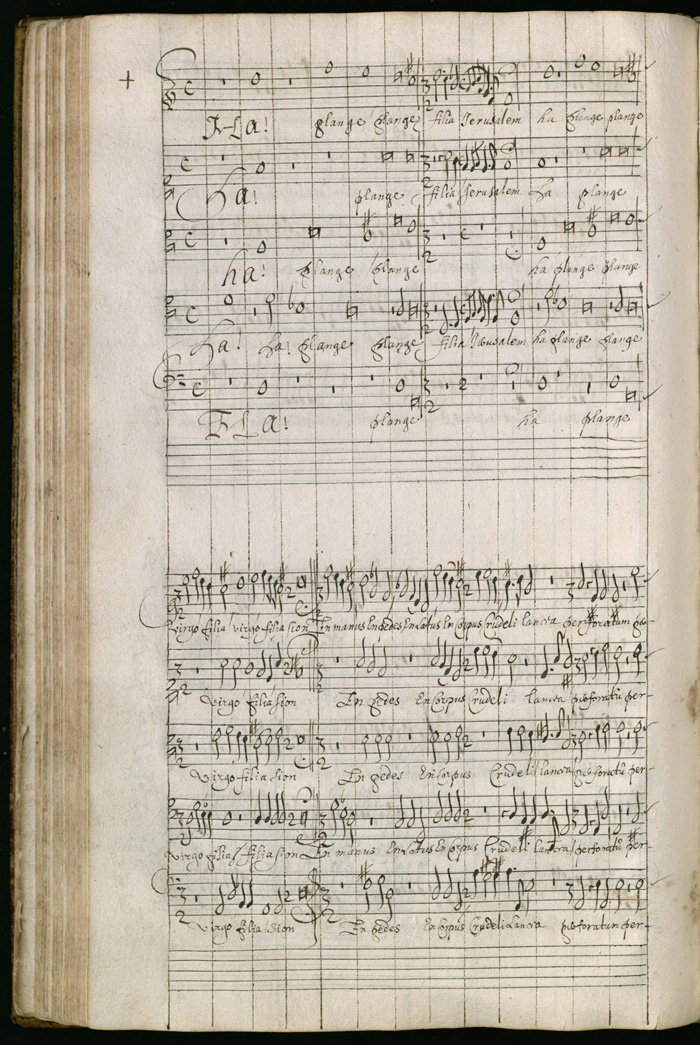 Ha! plange plange filia Jerusalem ha plange plange
ha! plange filia Jerusalem ha plange
ha! plange plange ha plange plange
ha! ha! plange plange filia Jerusalem ha plange plange
Ha! plange ha plange
Virgo filia virgo filia sion En manus En pedes En latus En corpus Crudeli lancea perforatum per-
Virgo filia sion En pedes En corpus Crudeli lancea perforatū per-
Virgo filia sion En pedes En corpus Crudeli lancea perforatū per-
Virgo filia filia sion En manus En latus En corpus Crudeli lancea perforatū per-
Virgo filia sion En pedes En corpus Crudeli lancea perforatum per-